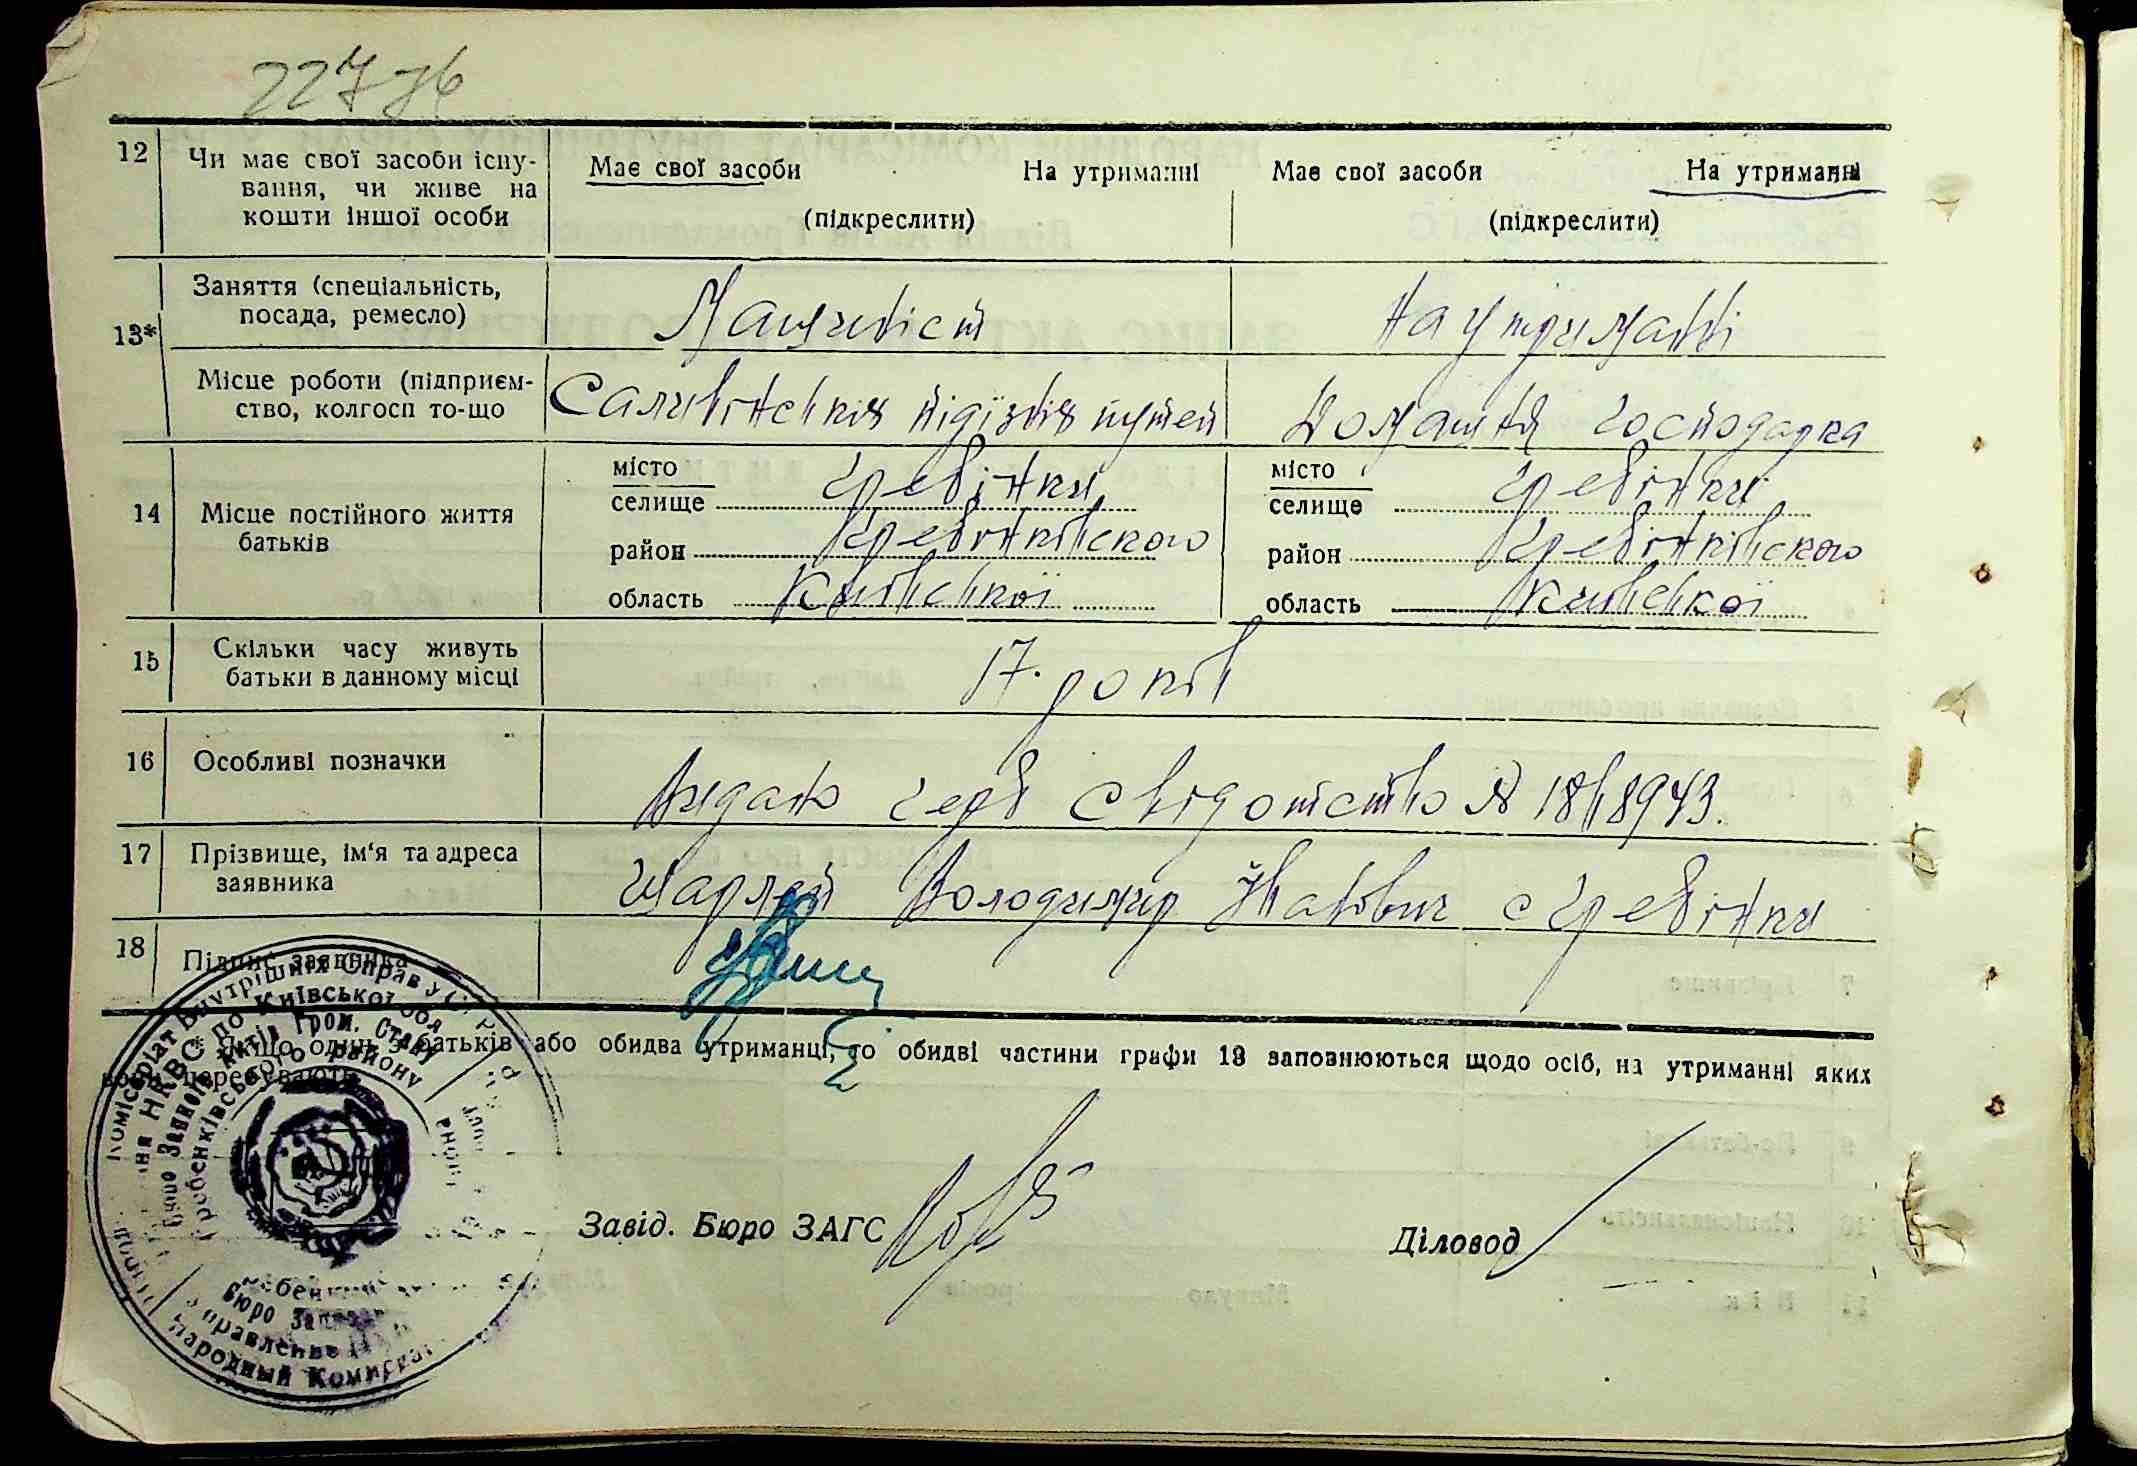 227 зб
12 Чи має свої засоби існу- Має свої засоби На утриманні Має свої засоби На утриманні
вання, чи живе на
кошти іншої особи (підкреслити) (підкреслити)
13* Заняття (спеціальність,
посада, ремесло) Машиніст На утриманні
Місце роботи (підприєм-
ство, колгосп то-що Саливінських підїзних путей Домашня господарка
14 Місце постійного життя
батьків
місто
селище Гребінки місто
селище Гребінки
район Гребінківского район Гребінківского
область Київської область Київської
15 Скільки часу живуть
батьки в данному місці 17. років
16 Особливі позначки Видано герб свідотство № 18118943.
17 Прізвище, ім'я та адреса
заявника Шарлай Володимир Іванович с Гребінки
18 Підпис заявника
* Якщо один з батьків або обидва утриманці, то обидві частини графи 13 заповнюються щодо осіб, на утриманні яких
вони перебувають
Завід. Бюро ЗАГС Діловод
Комісаріат Внутрішніх Справ У
НКВС по Київської обл
Бюро Записів Актів Гром. Стану
Гребенківського району
Бюро
Управление
Народный Комисс